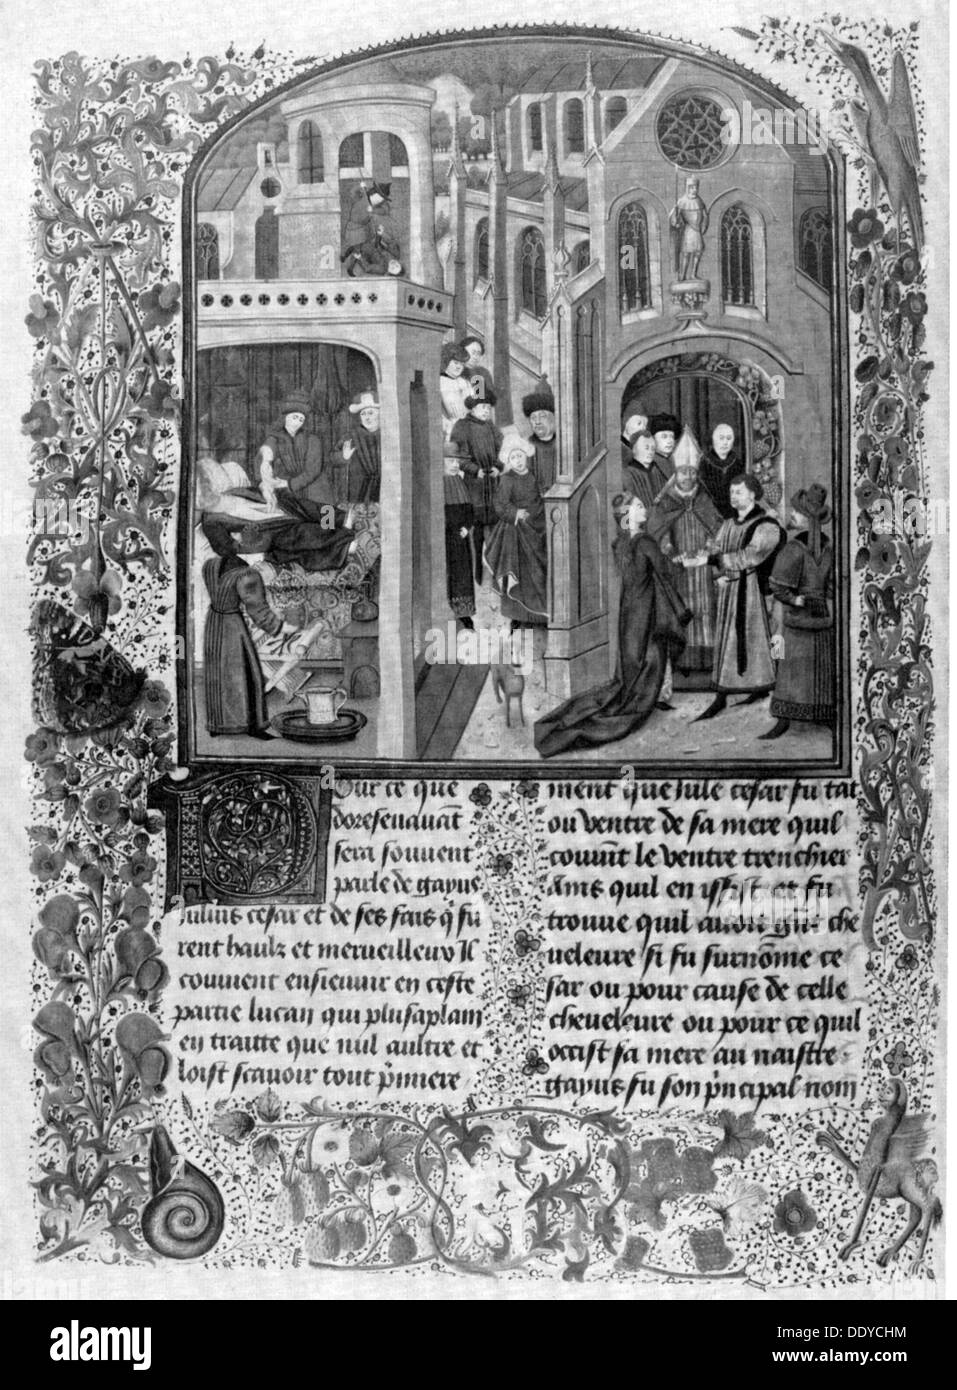 Pour ce que
doresenavant
sera souvent
parle de gayus
Julius cesar et de ses fais q̄ fu
rent haulz et merveilleux Il
convient ensievuir en ceste
partie lucan qui plusaplain
en traitte que nul aultre et
loist scavoir tout p̄miere
ment que Jule cesar fu tat
ou ventre de sa mere quil
convint le ventre trenchier
Ains quil en issist et fu
trouve quil avoit gnt che
veleure si fu surnōme ce
sar ou pour cause de celle
cheveleure ou pour ce quil
occist sa mere au naistre
gayus fu son p̄ncipal nom
alamy
Image ID: DDYCHM
www.alamy.com